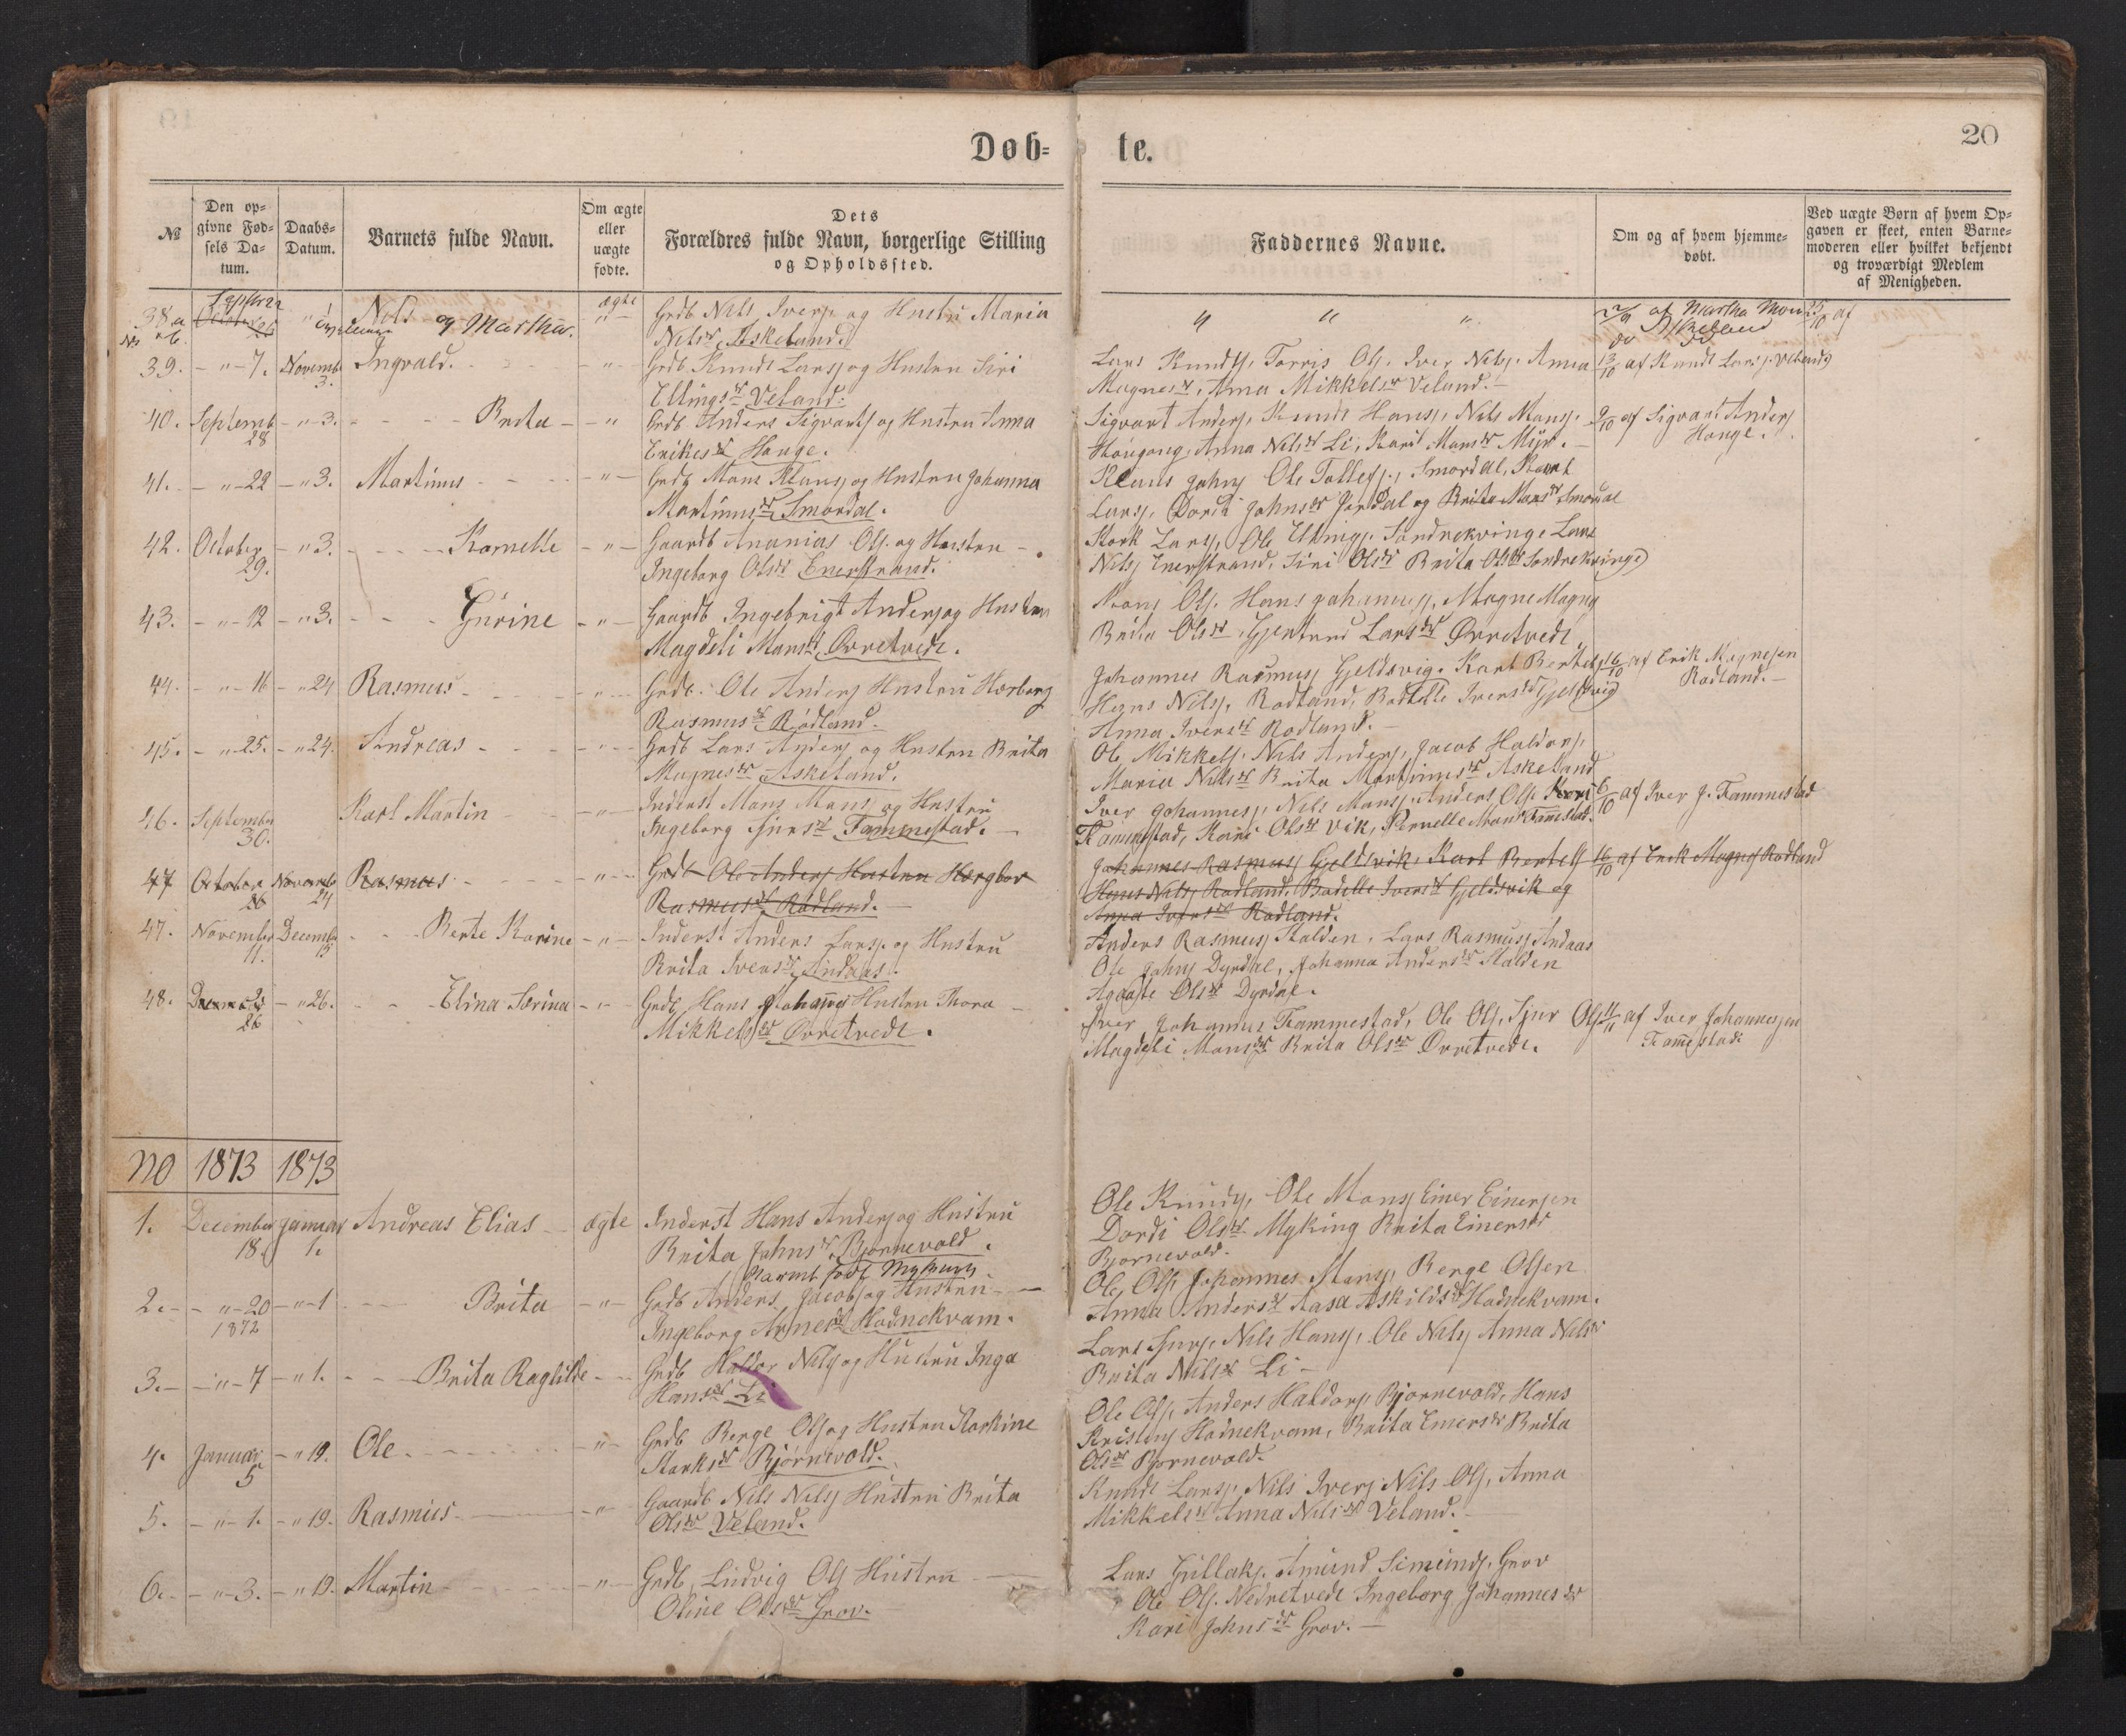 Døb-
te.
20
№
Den op-
givne Fød-
sels Da-
tum.
Daabs-
Datum.
Barnets fulde Navn.
Om ægte
eller
uægte
fødte.
Dets
Forældres fulde Navn, borgerlige Stilling
og Opholdssted.
Faddernes Navne.
Om og af hvem hjemme-
døbt.
Ved uægte Børn af hvem Op-
gaven er skeet, enten Barne-
moderen eller hvilket bekjendt
og troværdigt Medlem
af Menigheden.
38 a Nils og Martha. ægte Grdb Nils Iversj og Hustru Maria
Nilsdr Askeland. " " " af Martha Mons
Askeland
39. - " - 7. Novemb 3. Ingvald. - " Grdb Knud Larsj og Hustru Siri
Ellingsdr Veland.
Lars Knudsj, Torris Olsj. Iver Nilsj. Anna
Magnesdr, Anna Mikkelsdr Veland. 13/10 af Knud Larsj. Veland
40. Septemb 28 - " 3. Brita - " Grdb Anders Sigvartsj og Hustru Anna
Eriksdr Hauge.
Sigvart Andersj, Knud Hansj, Nils Monsj.
Anna Nilsdr Li, Kari Monsdr Myr. 9/10 af Sigvart Andersj
Hauge.
41. - " 22 - " 3. Martinus - " - Grdb Mons Klausj og Hustru Johanna
Martinusdr Smordal.
Klaus Johnsj Ole Tollefsj, Smordal, Karl
Larsj, Dordi Johnsdr Jordal og Brita Monsdr Smordal
42. October 29. - " 3. Kornelle - " - Gaardb Ananias Olsj. og Hustru
Ingeborg Olsdr Enerstrand.
Stork Larsj, Ole Ellingsj. Søndrekvinge Lars
Nilsj Enerstrand, Siri Olsdr Brita Olsdr Søndrekvinge
43. - " - 12 - " 3. Gurine - " - Gaardb Ingebrigt Andersj og Hustru
Magdeli Monsdr Øvretvedt.
Mons Olsj. Hans Johannesj, Magne Magnsj
Brita Olsdr Gjertrud Larsdr Øvretvedt.
44. - " - 16 - " 24 Rasmus - " Grdb. Ole Andersj Hustru Herborg
Rasmusdr Rødland.
Johannes Rasmusj Gjeldsvig. Karl Bertelsj
Hans Nilsj, Rødland, Bødtelle Iversdr Gjeldsvig
Anna Iversdr Rødland. 16/10 af Erik Magnesen
Rødland.
45. - " 25. - " 24. Andreas - " Grdb Lars Andersj og Hustru Brita
Magnesdr Askeland.
Ole Mikkelsj. Nils Andersj, Jacob Haldorsj.
Maria Nilsdr Brita Martinusdr Askeland
46. September 30. Karl Martin - " - Inderst Mons Monsj og Hustru
Ingeborg Sjursdr Tammestad.
Iver Johannesj, Nils Monsj. Anders Olsj.
Tammestad, Kari Olsdr Vik, Pernelle Monsdr Tammestad. 6/10 af Iver J. Tammestad
47 October 26 Novemb 24 Rasmus - " Grdb Ole Andersj Hustru Hærgbor
Rasmusdr Rødland.
Johannes Rasmusj Gjeldsvik, Karl Bertelsj
Hans Nilsj Rødland, Bødelle Iversdr Gjeldsvik og
Anna Iversdr Rødland. 16/10 af Erik Magnesj Rødland
47. November 11. Decemb 15 Berte Karine - " - Inderst Anders Larsj. og Hustru
Brita Iversdr Andaas.
Anders Rasmusj Stalden, Lars Rasmusj Andaas
Ole Johnsj Dyrdal, Johanna Andersdr Stalden
Agaate Olsdr Dyrdal.
48. 26 - " 26. Elina Sørina - " Grdb Hans Johannesj Hustru Thora
Mikkelsdr Øvretvedt.
Iver Johannes Tammestad, Ole Olsj, Sjur Olsj
Magdeli Monsdr Brita Olsdr Øvretvedt. 11/11 af Iver Johannessen
Tammestad
No 1873 1873
1. December 18. Januar 1. Andreas Elias ægte Inderst Hans Andersj og Hustru
Brita Johnsdr Bjørnevold.
Barnet født Myking
Ole Knudsj, Ole Monsj Einer Einersen
Dordi Olsdr Myking Brita Einersdr
Bjørnevold.
2. - " - 20 1872 - " - 1 Brita - " - Grdb Anders Jacobsj og Hustru
Ingeborg Arnesdr Hodnekvam.
Ole Olsj Johannes Monsj, Berge Olsen
Anna Andersdr Aasa Askildsdr Hodnekvam.
3. - " - 7 - " 1. Brita Raghilde Grdb Haldor Nilsj og Hustru Inga
Hansdr Li
Lars Sjursj. Nils Hansj. Ole Nilsj Anna Nilsdr
Brita Nilsdr Li
4. Januar 5 - " 19. Ole - " - Grdb Berge Olsj og Hustru Storkine
Storksdr Bjørnevold.
Ole Olsj. Anders Haldorsj Bjørnevold, Hans
Hodnekvam, Brita Einersdr Brita
Olsdr Bjørnevold.
5. - " - 1. - " 19. Rasmus - " Gaardb Nils Nilsj Hustru Brita
Olsdr Veland.
Knud Larsj, Nils Iversj. Nils Olsj, Anna
Mikkelsdr Anna Nilsdr Veland.
6. - " - 3. - " 19. Martin - " - Grdb Ludvig Olsj Hustru
Oline Olsdr Grov.
Lars Gullaksj. Amund Simundsj. Grov
Ole Olsj. Nedretvedt Ingeborg Johannesdr
Kari Johnsdr Grov.